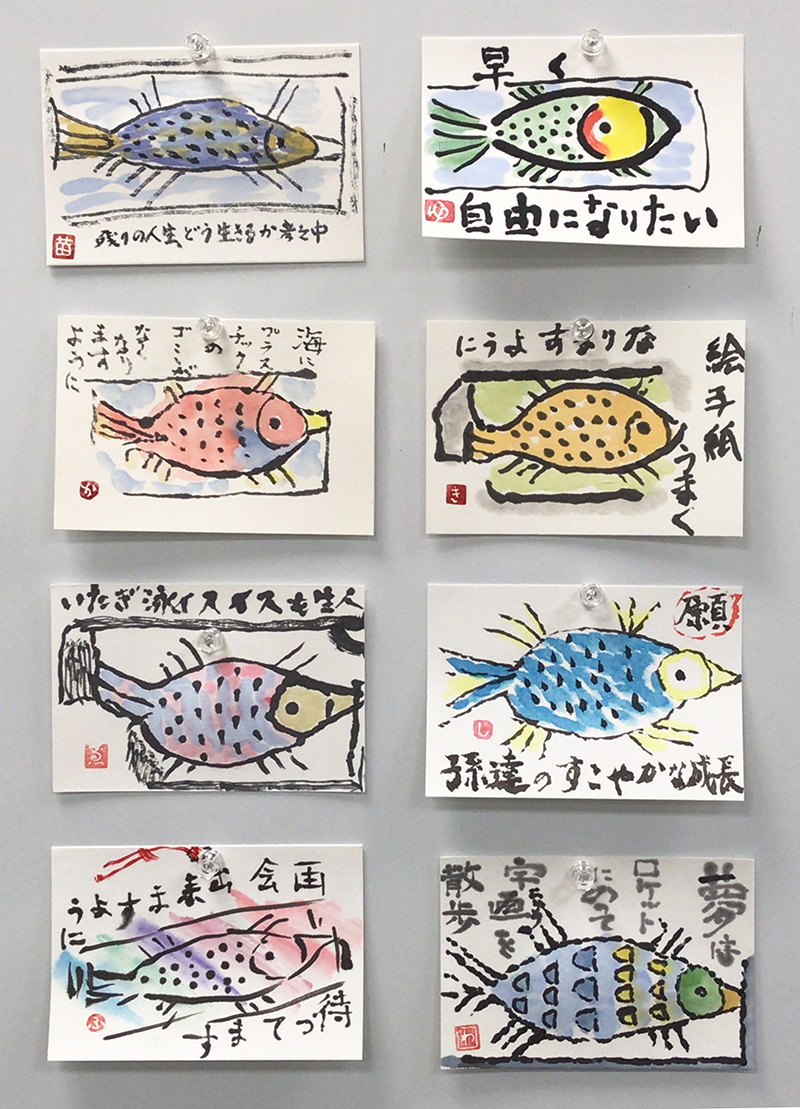 残りの人生、どう生きるか考え中
早く
自由になりたい
ゆ
海に
プラス
チック
の
ゴミが
なく
なり
ます
ように
か
絵手紙
うまく
なりますように
き
人生をスイスイ泳ぎたい
願
孫達のすこやかな成長
し
画会出来ますよう
に
待ってます
ふ
夢は
ロケット
にのて
宇宙を
散歩
わ